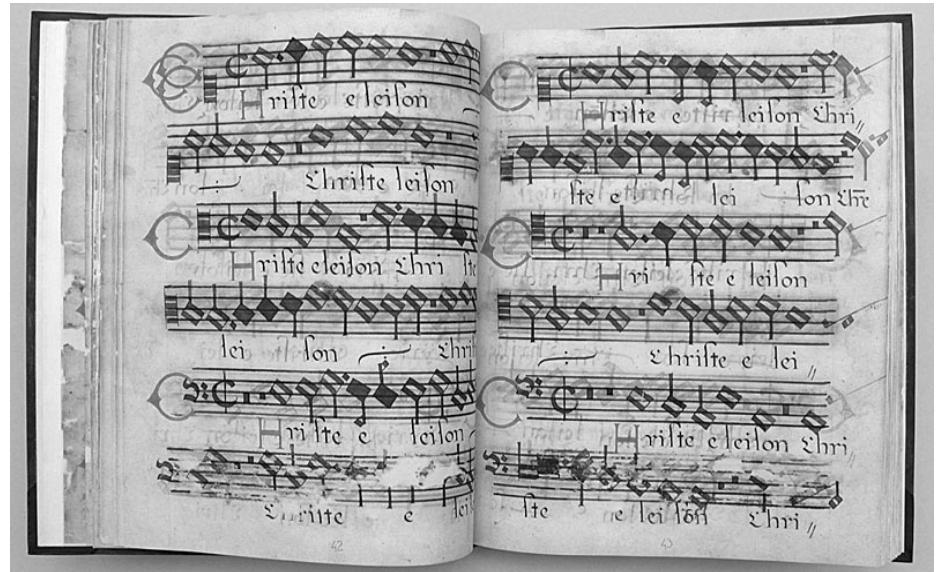 Christe eleison
Christe leison
Christe eleison Chri ste
lei son Chri
Christe e leison
Christe e lei
42
Christe e leison Chri
ste e lei son Chre
Christe e leison
Christe e lei
Christe eleison Chri
ste e lei son Chri
43